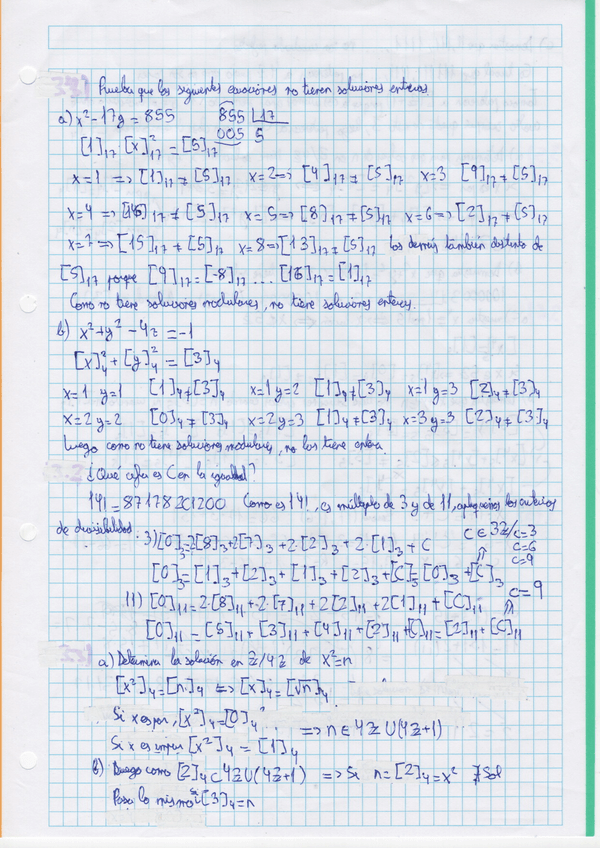 3.1) Prueba que las siguientes ecuaciones no tienen soluciones enteras
a) x²-17y = 855   855 |17
005 5
[1]₁₇·[x]²₁₇ = [5]₁₇
x=1 ⟹ [1]₁₇ ≠ [5]₁₇   x=2 ⟹ [4]₁₇ ≠ [5]₁₇   x=3 [9]₁₇ ≠ [5]₁₇
x=4 ⟹ [16]₁₇ ≠ [5]₁₇   x=5 ⟹ [8]₁₇ ≠ [5]₁₇   x=6 ⟹ [2]₁₇ ≠ [5]₁₇
x=7 ⟹ [15]₁₇ ≠ [5]₁₇   x=8 ⟹ [13]₁₇ ≠ [5]₁₇   los demás también distinto de
[5]₁₇ porque [9]₁₇ = [-8]₁₇ ... [16]₁₇ = [1]₁₇
Como no tiene soluciones modulares, no tiene soluciones enteras.
b) x²+y²-4z = -1
[x]²₄ + [y]²₄ = [3]₄
x=1 y=1 [1]₄ ≠ [3]₄   x=1 y=2 [1]₄ ≠ [3]₄   x=1 y=3 [2]₄ ≠ [3]₄
x=2 y=2 [0]₄ ≠ [3]₄   x=2 y=3 [1]₄ ≠ [3]₄   x=3 y=3 [2]₄ ≠ [3]₄
Luego como no tiene soluciones modulares, no las tiene entera.
3.2 ¿Qué cifra es C en la igualdad?
14! = 871782C1200 Como es 14!, es múltiplo de 3 y de 11, apliquemos los criterios
de divisibilidad. 3) [0]₃ = 2[8]₃ + 2[7]₃ + 2·[2]₃ + 2·[1]₃ + C   C ∈ 3ℤ / C=3
C=6
C=9
[0]₃ = [1]₃ + [2]₃ + [1]₃ + [2]₃ + [C]₃ = [0]₃ + [C]₃
11) [0]₁₁ = 2·[8]₁₁ + 2·[7]₁₁ + 2[2]₁₁ + 2[1]₁₁ + [C]₁₁   C=9
[0]₁₁ = [5]₁₁ + [3]₁₁ + [4]₁₁ + [2]₁₁ + [C]₁₁ = [2]₁₁ + [C]₁₁
a) Determina la solución en ℤ/4ℤ de x²=n
[x²]₄ = [n]₄ ⟺ [x]₄ = [√n]₄
Si x es par, [x²]₄ = [0]₄   ⟹ n ∈ 4ℤ ∪ (4ℤ+1)
Si x es impar [x²]₄ = [1]₄
b) Luego como [2]₄ ⊄ 4ℤ ∪ (4ℤ+1) ⟹ Si n = [2]₄ = x² ∄ Sol
Pasa lo mismo si [3]₄ = n